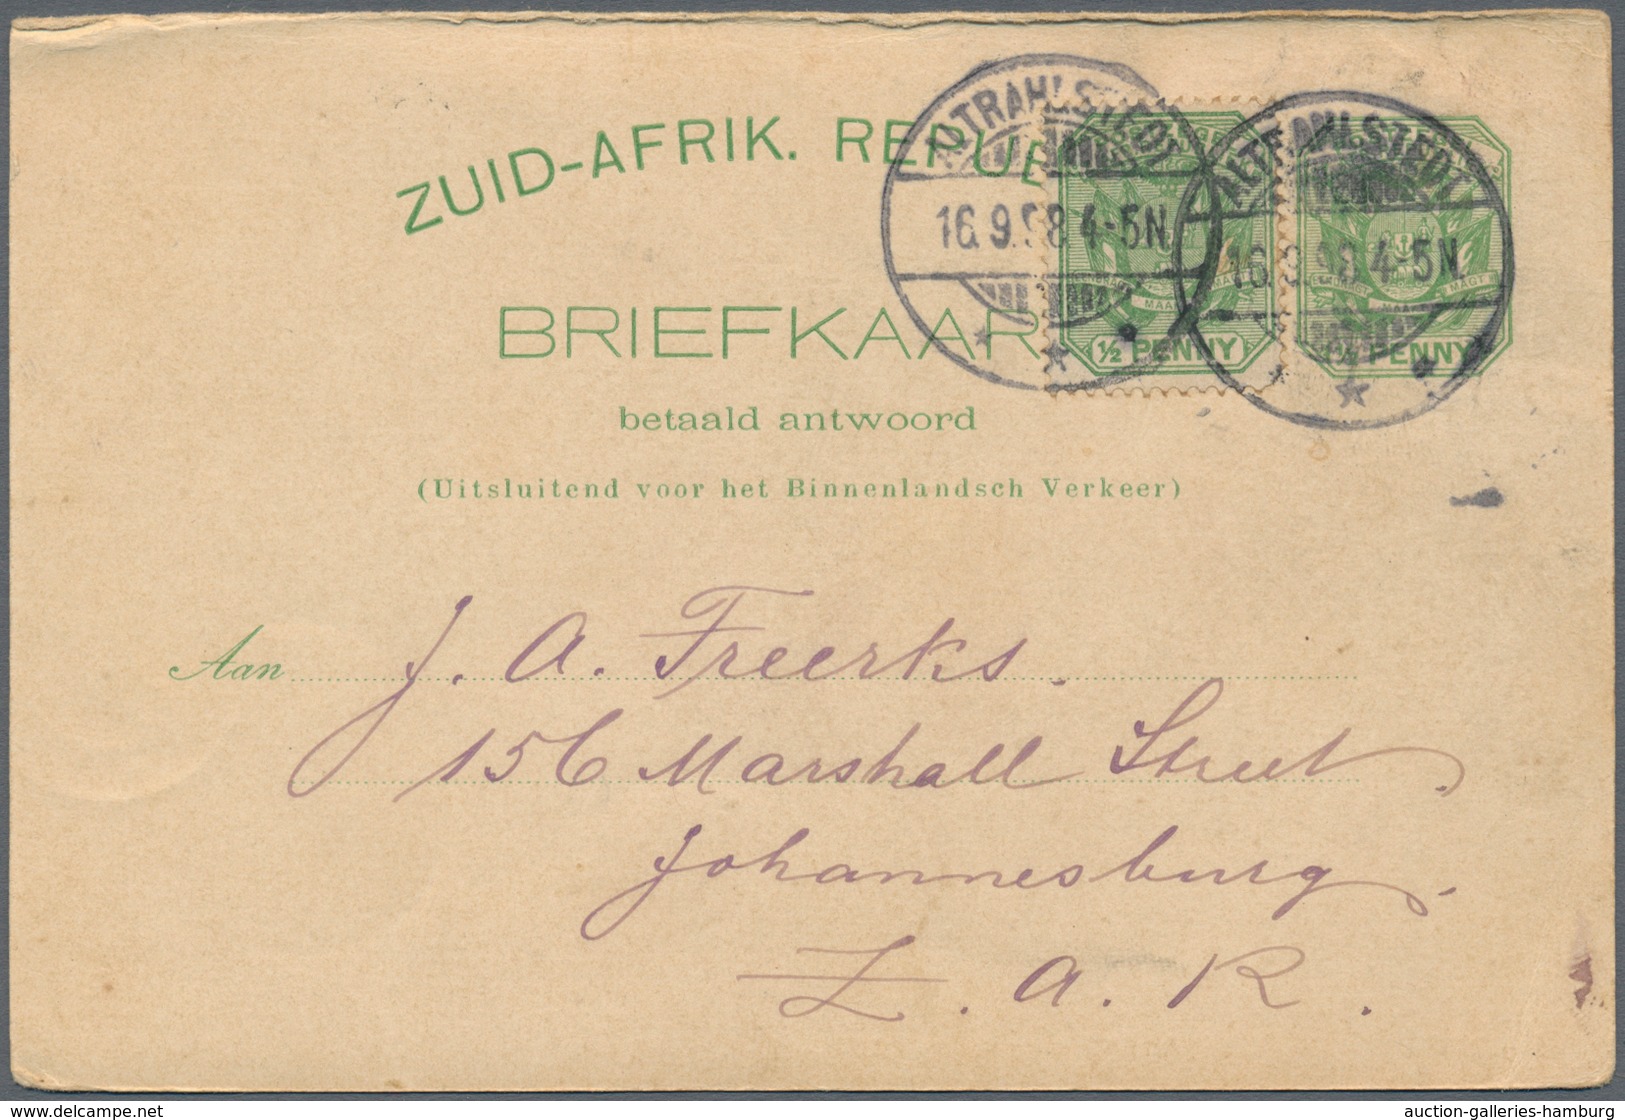 ZUID-AFRIK. REPUB
BRIEFKAAR
betaald antwoord
(Uitsluitend voor het Binnenlandsch Verkeer)
ALTRAHLSTEDT
16.9.98 4-5N.
ALTRAHLSTEDT
16.9.98 4-5N.
MAGT
½ PENNY
PENNY
Aan J. A. Freerks.
156 Marshall Street.
Johannesburg.
Z. A. R.
www.delcampe.net
auction-galleries-hamburg